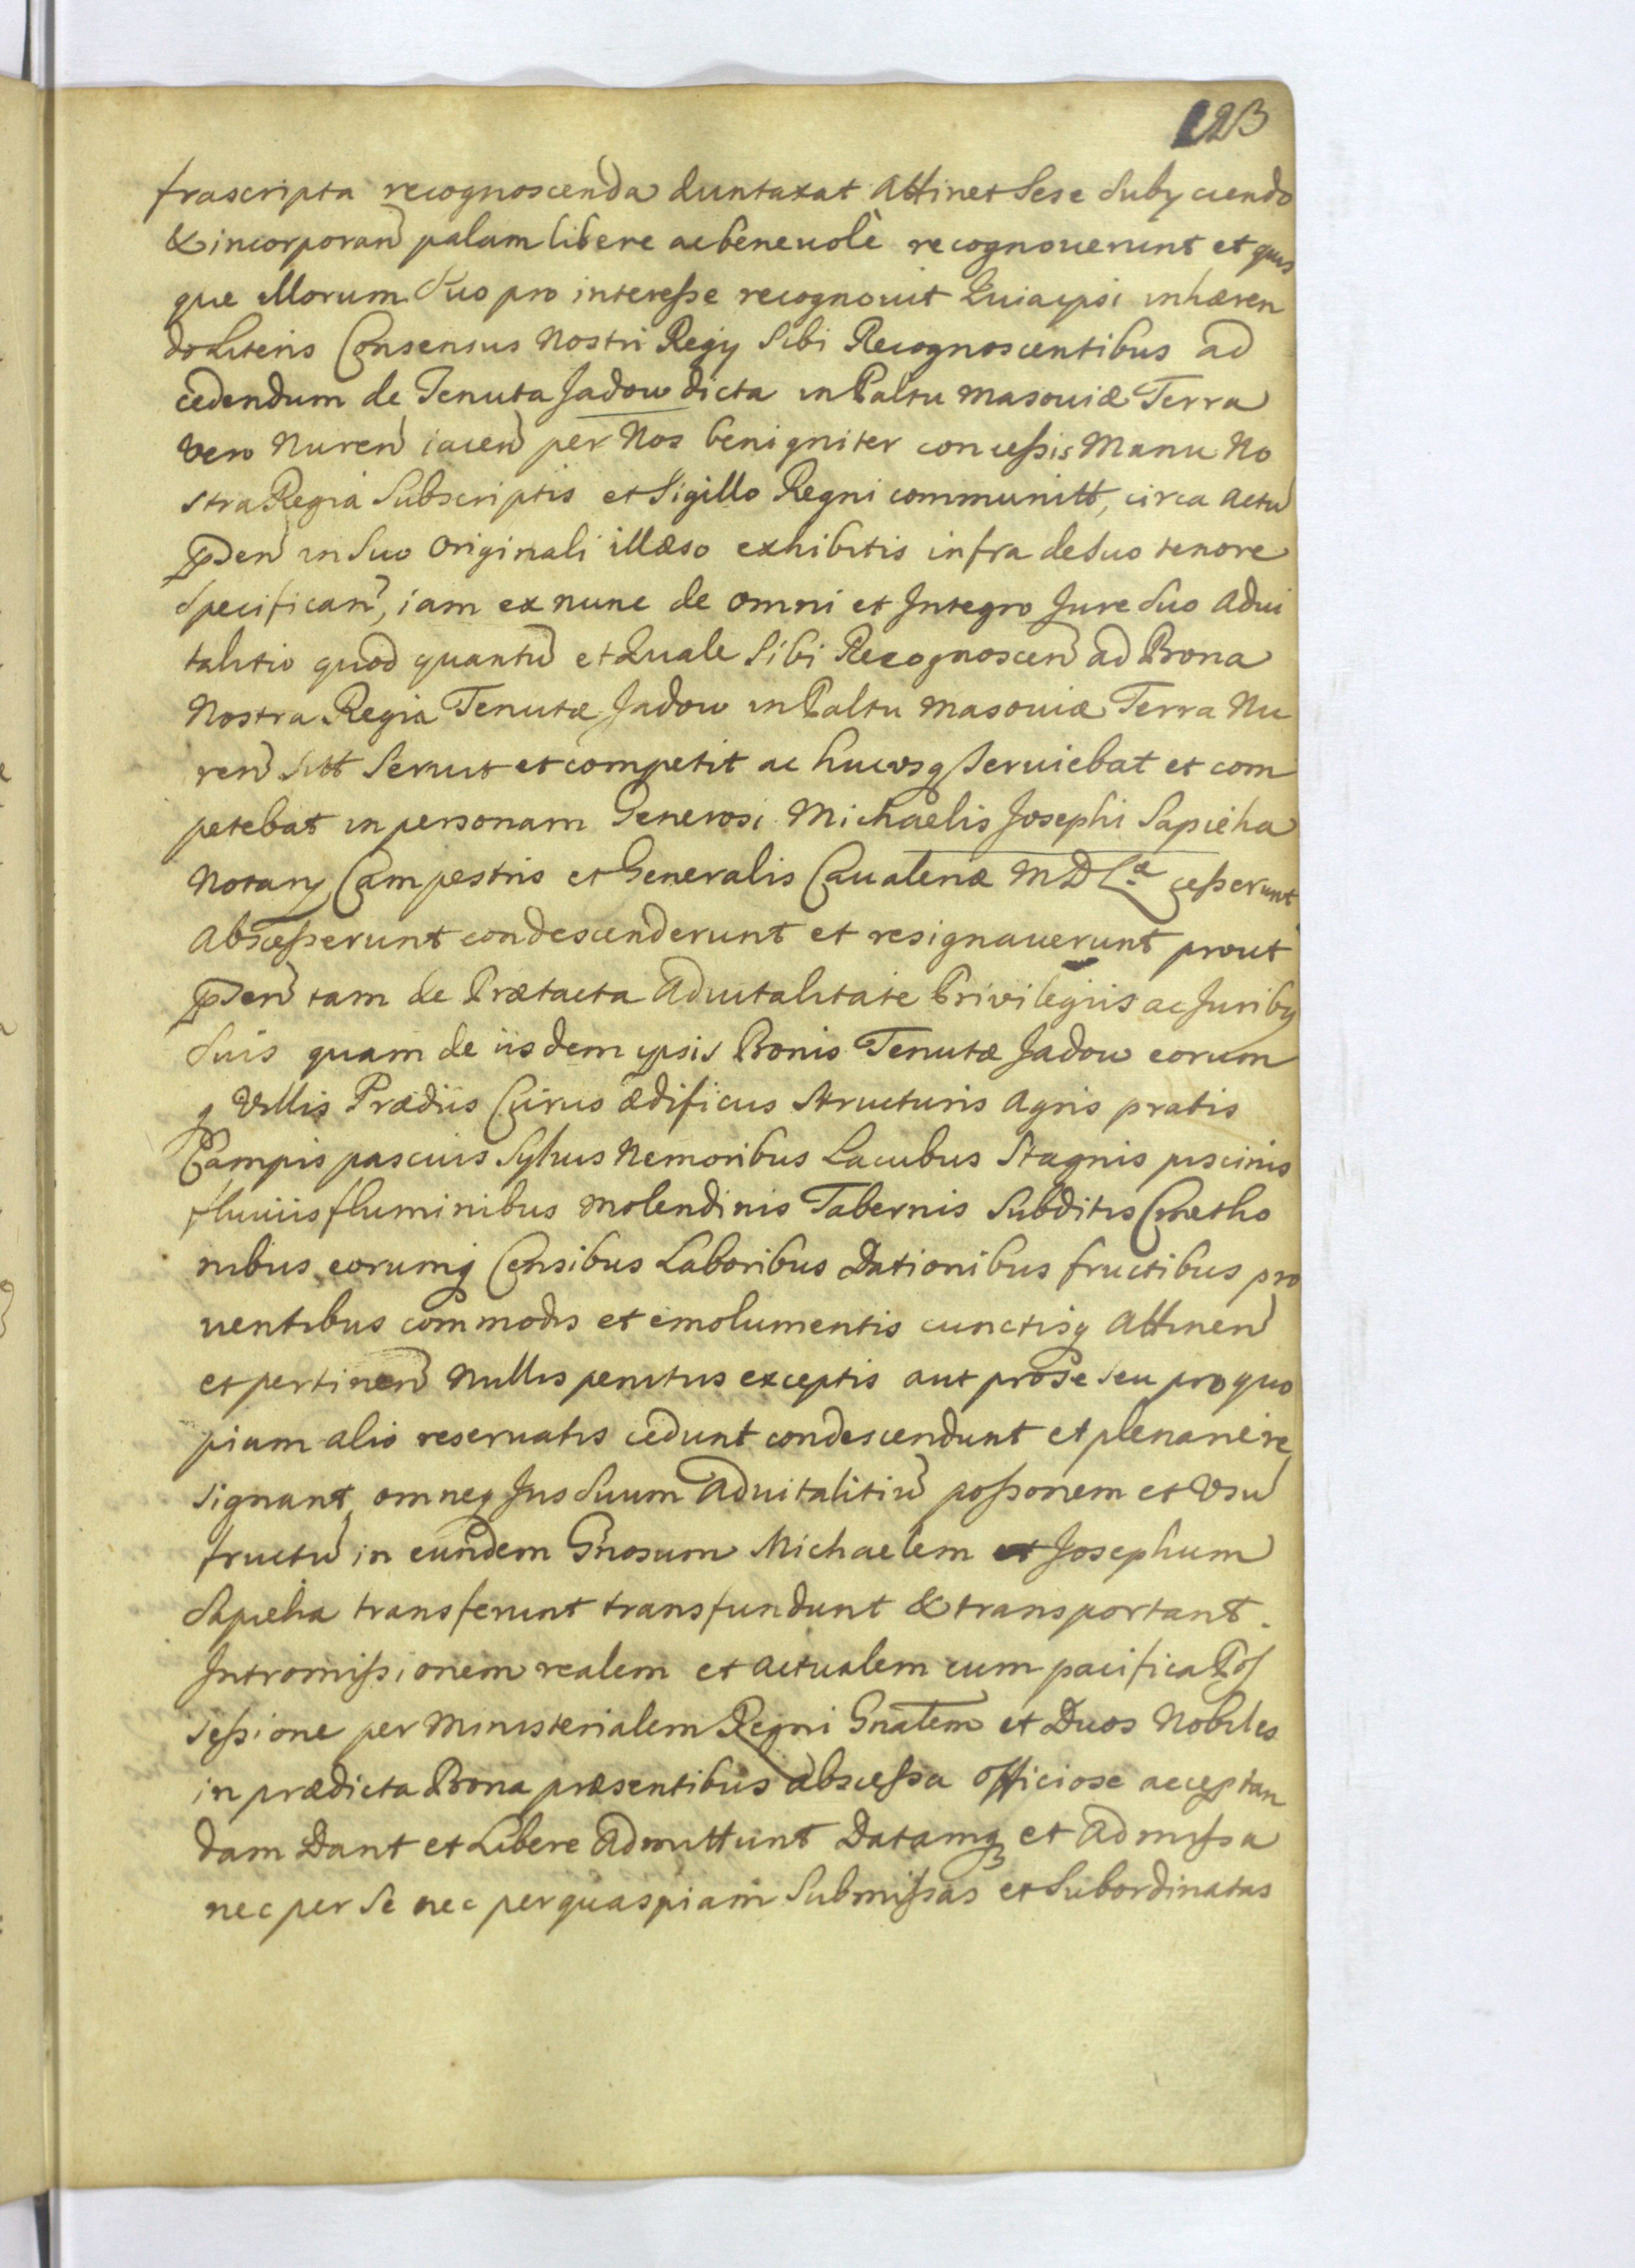 123
frascripta recognoscenda duntaxat Attinet Sese Subyciendo
& incorporan palam libere ac beneuolè recognouerunt et quis
que illorum Suo pro interesse recognouit Quia ipsi inhæren
do Literis Consensus Nostri Regy Sibi Recognoscentibus ad
cedendum de Tenuta Jadow dicta in Paltu Masouiæ Terra
vero Nuren iacen per Nos benigniter concessis Manu No
stra Regia Subscriptis et Sigillo Regni communitt, circa Actu
pden in Suo Originali illæso exhibitis infra de Suo tenore
Specifican, iam ex nunc de omni et Integro Jure Suo Adui
talitio quod quantu et Quale Sibi Recognoscen ad Bona
Nostra Regia Tenutæ Jadow in Paltu Masouiæ Terra Nu
ren sitt Seruit et competit ac hucvsq seruiebat et com
petebat in personam Generosi Michaelis Josephi Sapieha
Notary Campestris et Generalis Caualeriæ M D L.æ cesserunt
Abscesserunt condescenderunt et resignauerunt prout
pden tam de Prætacta Aduitalitate Privilegiis ac Juribq
Suis quam de iisdem ipsis Bonis Tenutæ Jadow eorum
q Villis Prædiis Curiis ædificiis Structuris Agris pratis
Campis pascuis Syluis Nemoribus Lacubus Stagnis piscinis
fluuiis fluminibus Molendinis Tabernis Subditis Cmetho
nibus eorumq Censibus Laboribus Dationibus fructibus pro
uentibus commodis et emolumentis cunctisq Attinen
et pertinen Nullis penitus exceptis aut pro Se seu pro quo
piam alio reseruatis cedunt condescendunt et plenarie re
signant, omneq Jus Suum Aduitalitiu possonem et Vsu
fructu in eundem Gnosum Michaelem et Josephum
Sapieha transferunt transfundunt & transportant.
Intromissionem realem et actualem cum pacifica Pos
sessione per Ministerialem Regni Gnalem et Duos Nobiles
in prædicta Bona præsentibus abscessa officiose acceptan
dam Dant et Libere Admittunt Datamq et Admissa
nec per Se nec per quaspiam Submissas et Subordinatas